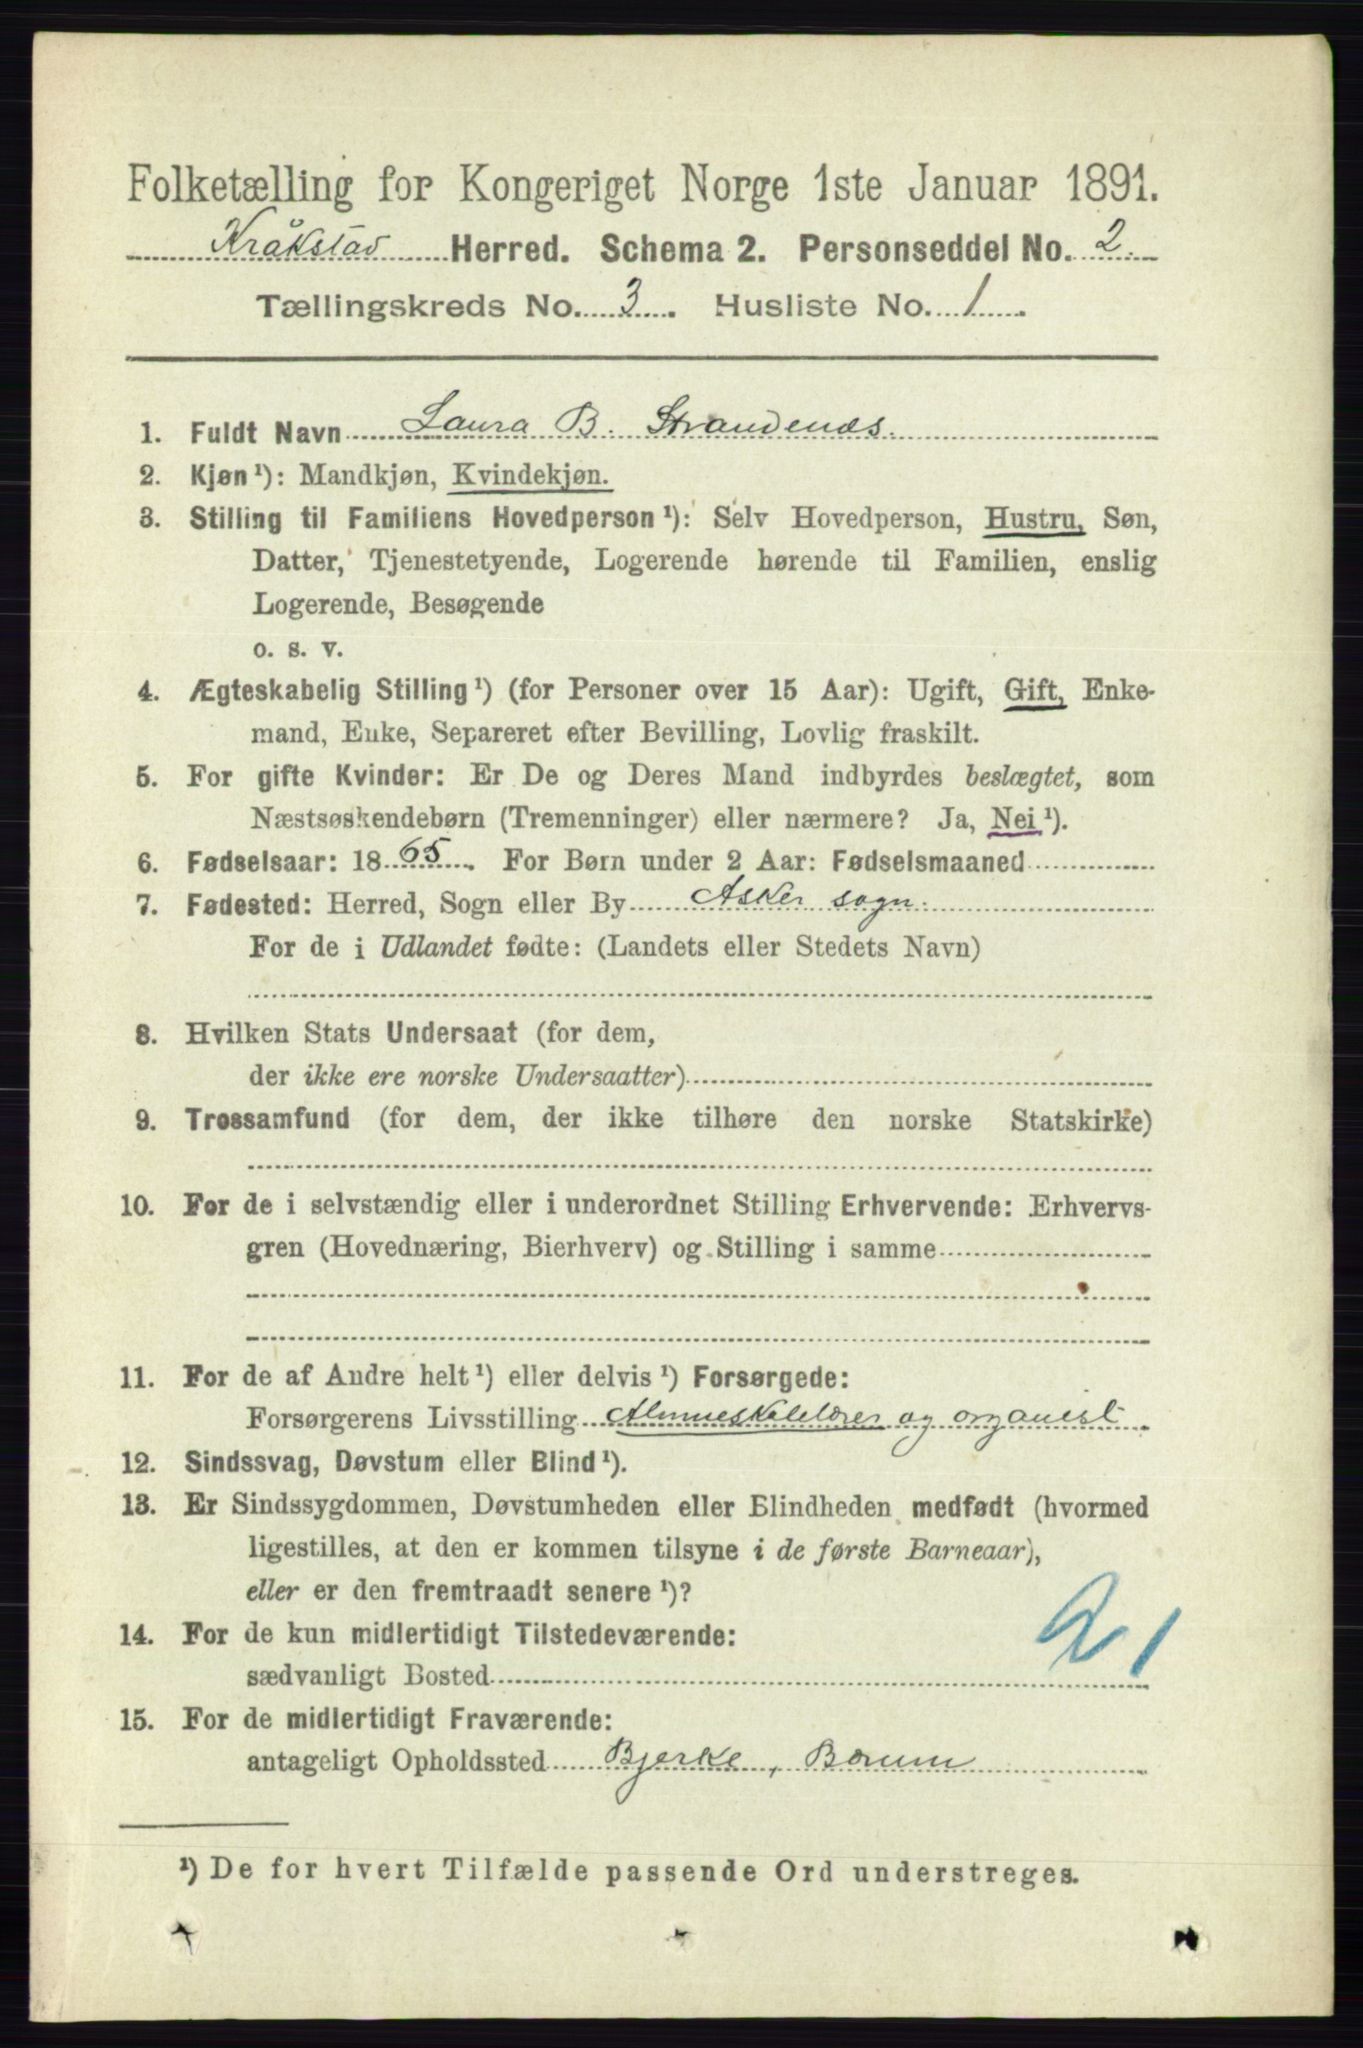 Folketælling for Kongeriget Norge 1ste Januar 1891.
Kråkstad Herred. Schema 2. Personseddel No. 2.
Tællingskreds No. 3. Husliste No. 1
1. Fuldt Navn Laura B. Strandenæs.
2. Kjøn¹): Mandkjøn, Kvindekjøn.
3. Stilling til Familiens Hovedperson¹): Selv Hovedperson, Hustru, Søn,
Datter, Tjenestetyende, Logerende hørende til Familien, enslig
Logerende, Besøgende
o. s. v.
4. Ægteskabelig Stilling¹) (for Personer over 15 Aar): Ugift, Gift, Enke-
mand, Enke, Separeret efter Bevilling, Lovlig fraskilt.
5. For gifte Kvinder: Er De og Deres Mand indbyrdes beslægtet, som
Næstsøskendebørn (Tremenninger) eller nærmere? Ja, Nei¹).
6. Fødselsaar: 1865. For Børn under 2 Aar: Fødselsmaaned
7. Fødested: Herred, Sogn eller By Asker sogn.
For de i Udlandet fødte: (Landets eller Stedets Navn)
8. Hvilken Stats Undersaat (for dem,
der ikke ere norske Undersaatter)
9. Trossamfund (for dem, der ikke tilhøre den norske Statskirke)
10. For de i selvstændig eller i underordnet Stilling Erhvervende: Erhvervs-
gren (Hovednæring, Bierhverv) og Stilling i samme
11. For de af Andre helt¹) eller delvis¹) Forsørgede:
Forsørgerens Livsstilling Almueskolelærer og organist.
12. Sindssvag, Døvstum eller Blind¹).
13. Er Sindssygdommen, Døvstumheden eller Blindheden medfødt (hvormed
ligestilles, at den er kommen tilsyne i de første Barneaar),
eller er den fremtraadt senere¹)?
14. For de kun midlertidigt Tilstedeværende:
sædvanligt Bosted
21
15. For de midlertidigt Fraværende:
antageligt Opholdssted Bjerke, Bærum
¹) De for hvert Tilfælde passende Ord understreges.